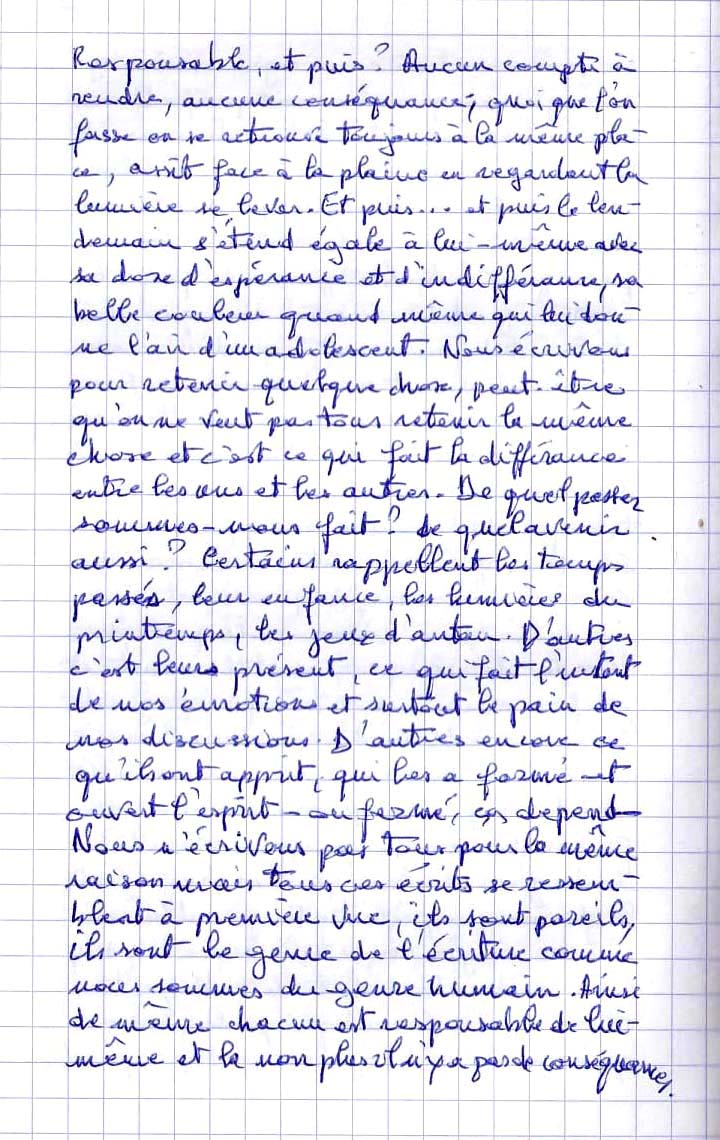 Responsable, et puis? Aucun compte à
rendre, aucune conséquance, quoi que l'on
fasse on se retrouve toujours à la même pla-
ce, assit face à la plaine en regardant la
lumière se lever. Et puis... et puis le len-
demain s'étend égale à lui-même avec
sa dose d'espérance et d'indifférance, sa
belle couleur quand même qui lui don-
ne l'air d'un adolescent. Nous écrivons
pour retenir quelque chose, peut-être
qu'on ne veut pas tous retenir la même
chose et c'est ce qui fait la différance
entre les uns et les autres. De quel passer
sommes-nous fait? de quel avenir
aussi? Certains rappellent les temps
passés, leur enfance, les lumières du
printemps, les jeux d'antan. D'autres
c'est leurs présent, ce qui fait l'instant
de nos émotions et surtout le pain de
nos discussions. D'autres encore ce
qu'ils ont apprit, qui les a formé et
ouvert l'esprit - ou fermé, ça depend
Nous n'écrivons pas tous pour la même
raison mais tous ces écrits se ressem-
blent à première vue, ils sont pareils,
ils sont le genre de l'écriture comme
nous sommes du genre humain. Ainsi
de même chacun est responsable de lui-
même et là non plus il n'y a pas de conséquances.